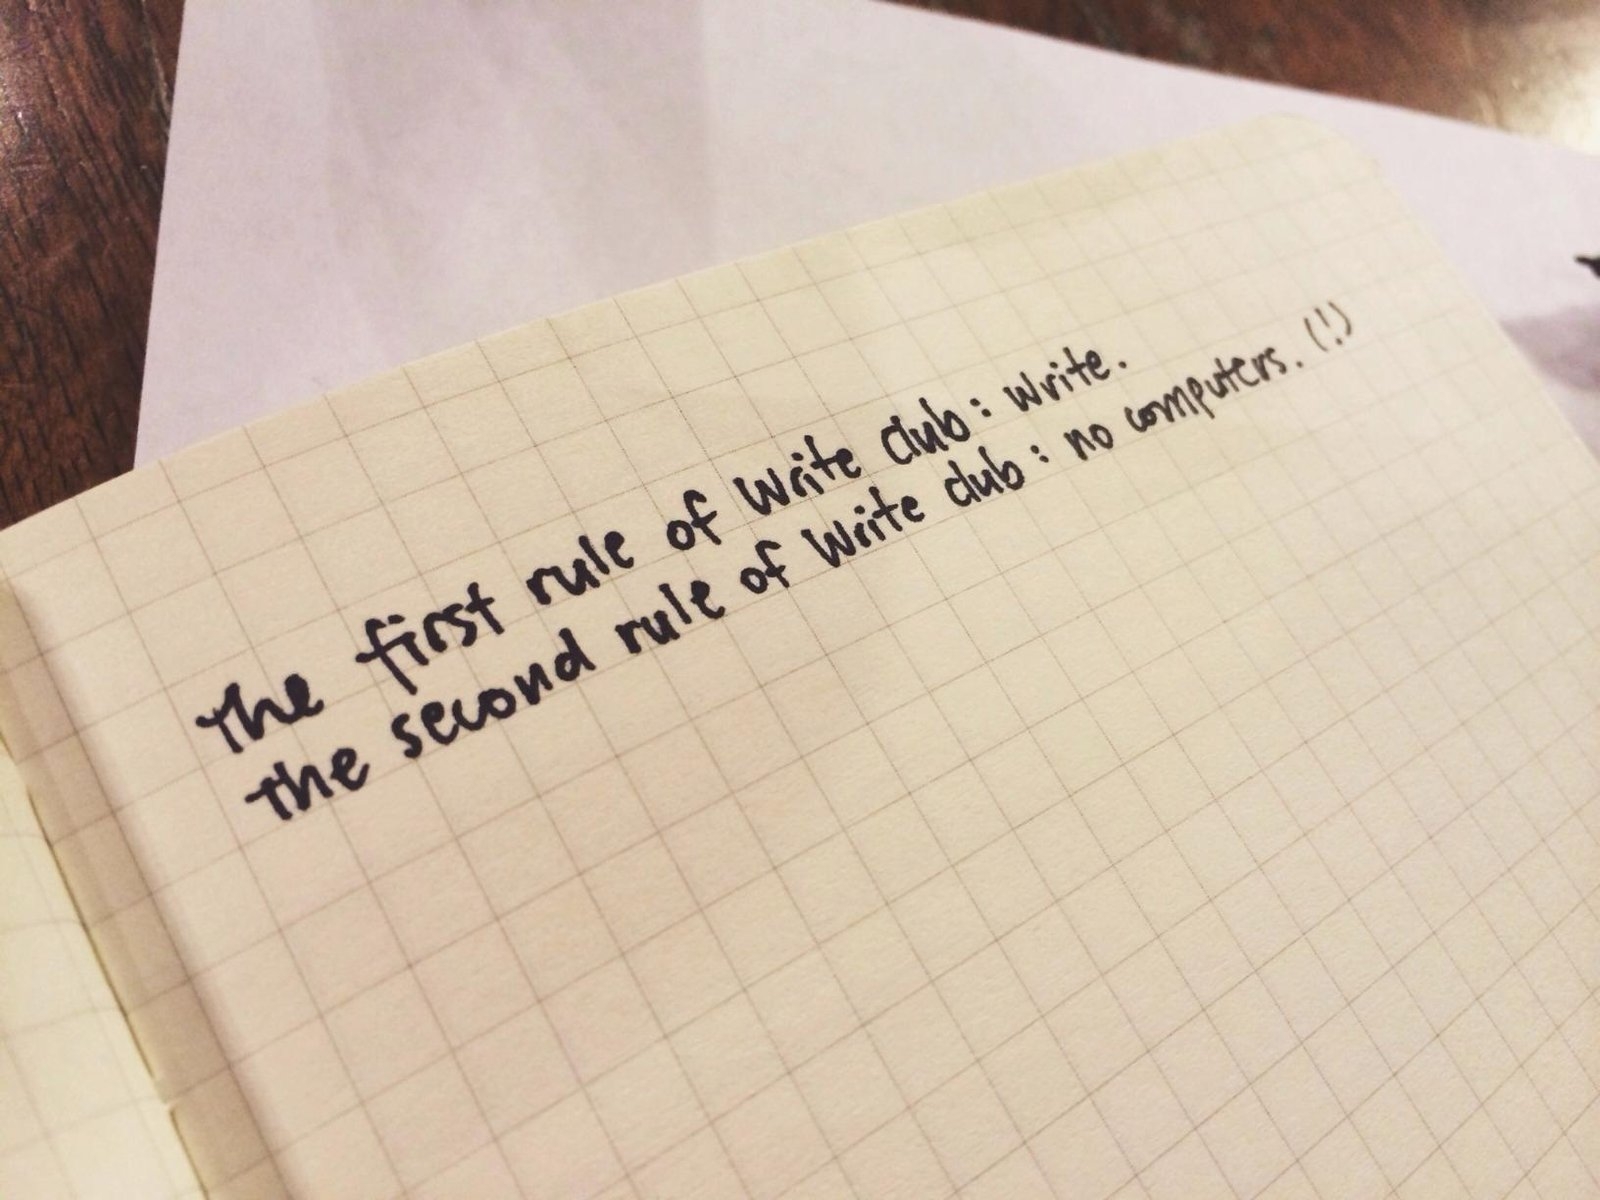 The first rule of Write club: write.
The second rule of Write club: no computers. (!)